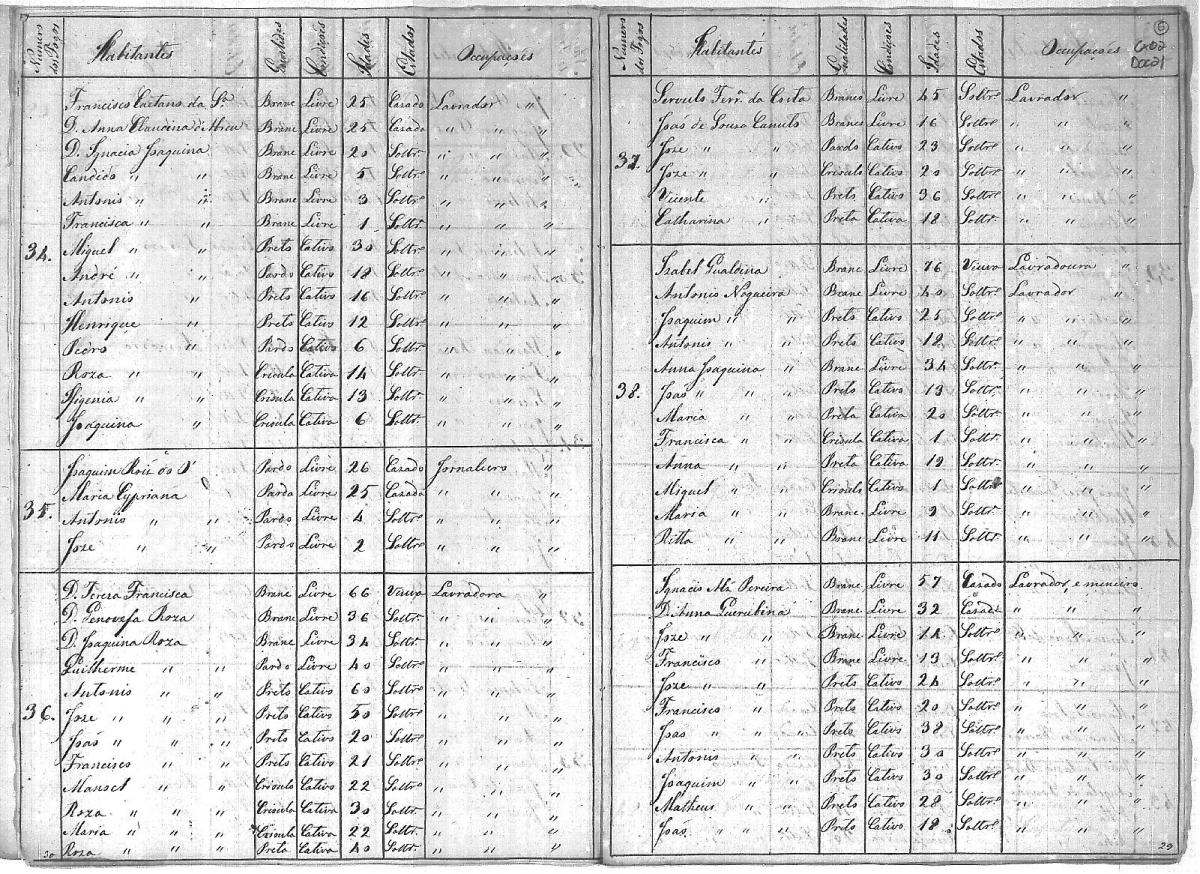 Numero dos Fogos Habitantes Qualides Condições Idades Estados Occupações
Francisco Caetano da Sa Branc Livre 25 Cazado Lavrador "
D. Anna Claudina Branc Livre 25 Cazada " " "
D. Ignacia Joaquina Branc Livre 20 Soltra " " "
Candido " " Branc Livre 5 Soltro " " "
Antonio " " Branc Livre 3 Soltro " " "
Francisca " " Branc Livre 1 Soltra " " "
34. Miguel " " Preto Cativo 30 Soltro " " "
André " " Pardo Cativo 18 Soltro " " "
Antonio " Preto Cativo 16 Soltro " " "
Henrique " Preto Cativo 12 Soltro " " "
Pedro " " Pardo Cativo 6 Soltro " " "
Roza " " Crioula Cativa 14 Soltra " " "
Efigenia " " Crioula Cativa 13 Soltra " " "
Joaquina " Crioula Cativa 6 Soltra " " "
Joaquim Roiz Pardo Livre 26 Cazado Jornaleiro "
Maria Cypriana Parda Livre 25 Cazada " " "
35. Antonio " " Pardo Livre 4 Soltro " " "
Joze " " Pardo Livre 2 Soltro " " "
D. Tereza Francisca Branc Livre 66 Viuva Lavradora "
D. Genovefa Roza Branc Livre 36 Soltra " " "
D. Joaquina Roza Branc Livre 34 Soltra " " "
Guilherme " " Pardo Livre 40 Soltro " " "
Antonio " " Preto Cativo 60 Soltro " " "
36. Joze " " " Preto Cativo 50 Soltro " " "
João " " " Preto Cativo 20 Soltro " " "
Francisco " " Preto Cativo 21 Soltro " " "
Manoel " " " Crioulo Cativo 22 Soltro " " "
Roza " " " Crioula Cativa 30 Soltra " " "
Maria " " " Crioula Cativa 22 Soltra " " "
30 Roza " " " Preta Cativa 40 Soltra " " "
Numero dos Fogos Habitantes Qualidades Condições Idades Estados Occupações
6
Cx02
Doc21
Servulo Ferra da Costa Branco Livre 45 Soltro Lavrador "
João de Souza Canuto Branco Livre 16 Soltro " " "
37. Joze " " Pardo Cativo 23 Soltro " " "
Joze " " Crioulo Cativo 20 Soltro " " "
Vicente " Preto Cativo 36 Soltro " " "
Catharina " Preta Cativa 18 Soltra " " "
Izabel Gualdina Branc Livre 76 Viuva Lavradoura "
Antonio Nogueira Branc Livre 40 Soltro Lavrador "
Joaquim " " Preto Cativo 25 Soltro " " "
Antonio " " Preto Cativo 18 Soltro " " "
Anna Joaquina Branc Livre 34 Soltra " " "
38. João " " " Preto Cativo 19 Soltro " " "
Maria " " Preta Cativa 20 Soltra " " "
Francisca " " Crioula Cativa 1 Soltra " " "
Anna " Preta Cativa 19 Soltra " " "
Miguel " " Crioulo Cativo 1 Soltro " " "
Maria " " Branc Livre 9 Soltra " " "
Ritta " " Branc Livre 11 Soltra " " "
Ignacio Pereira Branc Livre 57 Cazado Lavrador, e mineiro
D. Anna Querubina Branc Livre 32 Cazada " " "
Joze " " Branc Livre 14 Soltro " " "
Francisco " Branc Livre 13 Soltro " " "
Joze " " Preto Cativo 24 Soltro " " "
Francisco " Preto Cativo 20 Soltro " " "
João " " " Preto Cativo 38 Soltro " " "
Antonio " " Preto Cativo 30 Soltro " " "
Joaquim " Preto Cativo 30 Soltro " " "
Matheus " " Preto Cativo 28 Soltro " " "
João " " " Preto Cativo 18 Soltro " " "
29